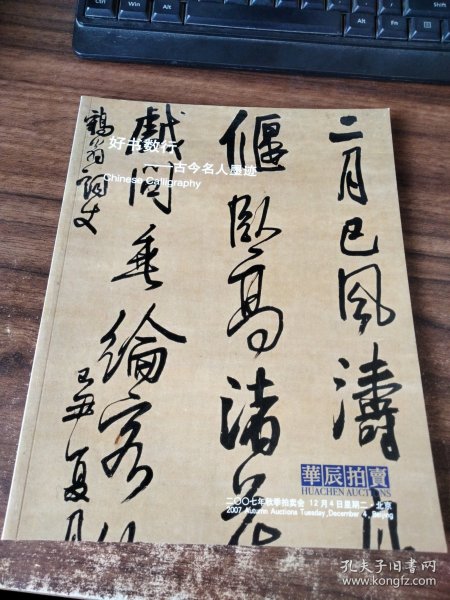 二月已风涛
偃卧高渚花
戏问垂纶客
鹤翁词丈
己丑夏月
好书数行
——古今名人墨迹
Chinese Calligraphy
華辰拍賣
HUACHEN AUCTIONS
二〇〇七年秋季拍卖会 12月4日星期二·北京
2007 Autumn Auctions Tuesday, December 4, Beijing
孔夫子旧书网
www.kongfz.com